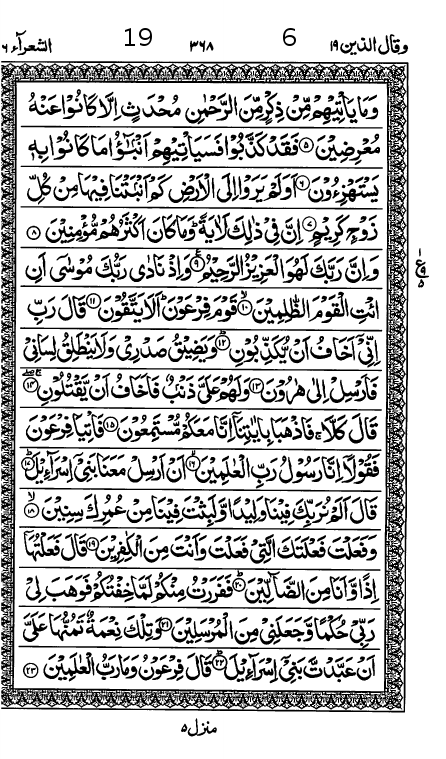 وقال الذین ۱۹ ۳۶۸ الشعرآء ۲۶
19 6
وَمَا يَاْتِيْهِمْ مِّنْ ذِكْرٍ مِّنَ الرَّحْمٰنِ مُحْدَثٍ اِلَّا كَانُوْا عَنْهُ
مُعْرِضِيْنَ ۝۵ فَقَدْ كَذَّبُوْا فَسَيَاْتِيْهِمْ اَنْۢبٰٓؤُا مَا كَانُوْا بِهٖ
يَسْتَهْزِءُوْنَ ۝۶ اَوَلَمْ يَرَوْا اِلَى الْاَرْضِ كَمْ اَنْۢبَتْنَا فِيْهَا مِنْ كُلِّ
زَوْجٍ كَرِيْمٍ ۝۷ اِنَّ فِيْ ذٰلِكَ لَاٰيَةً ؕ وَمَا كَانَ اَكْثَرُهُمْ مُّؤْمِنِيْنَ ۝۸
وَاِنَّ رَبَّكَ لَهُوَ الْعَزِيْزُ الرَّحِيْمُ ۝۹ وَاِذْ نَادٰى رَبُّكَ مُوْسٰٓى اَنِ
ائْتِ الْقَوْمَ الظّٰلِمِيْنَ ۝۱۰ قَوْمَ فِرْعَوْنَ ؕ اَلَا يَتَّقُوْنَ ۝۱۱ قَالَ رَبِّ
اِنِّيْٓ اَخَافُ اَنْ يُّكَذِّبُوْنِ ۝۱۲ وَيَضِيْقُ صَدْرِيْ وَلَا يَنْطَلِقُ لِسَانِيْ
فَاَرْسِلْ اِلٰى هٰرُوْنَ ۝۱۳ وَلَهُمْ عَلَيَّ ذَنْۢبٌ فَاَخَافُ اَنْ يَّقْتُلُوْنِ ۝۱۴
قَالَ كَلَّا ۚ فَاذْهَبَا بِاٰيٰتِنَآ اِنَّا مَعَكُمْ مُّسْتَمِعُوْنَ ۝۱۵ فَاْتِيَا فِرْعَوْنَ
فَقُوْلَآ اِنَّا رَسُوْلُ رَبِّ الْعٰلَمِيْنَ ۝۱۶ اَنْ اَرْسِلْ مَعَنَا بَنِيْٓ اِسْرَآءِيْلَ ۝۱۷
قَالَ اَلَمْ نُرَبِّكَ فِيْنَا وَلِيْدًا وَّلَبِثْتَ فِيْنَا مِنْ عُمُرِكَ سِنِيْنَ ۝۱۸
وَفَعَلْتَ فَعْلَتَكَ الَّتِيْ فَعَلْتَ وَاَنْتَ مِنَ الْكٰفِرِيْنَ ۝۱۹ قَالَ فَعَلْتُهَآ
اِذًا وَّاَنَا مِنَ الضَّآلِّيْنَ ۝۲۰ فَفَرَرْتُ مِنْكُمْ لَمَّا خِفْتُكُمْ فَوَهَبَ لِيْ
رَبِّيْ حُكْمًا وَّجَعَلَنِيْ مِنَ الْمُرْسَلِيْنَ ۝۲۱ وَتِلْكَ نِعْمَةٌ تَمُنُّهَا عَلَيَّ
اَنْ عَبَّدْتَّ بَنِيْٓ اِسْرَآءِيْلَ ۝۲۲ قَالَ فِرْعَوْنُ وَمَا رَبُّ الْعٰلَمِيْنَ ۝۲۳
۱
ع
۵
منزل ۵